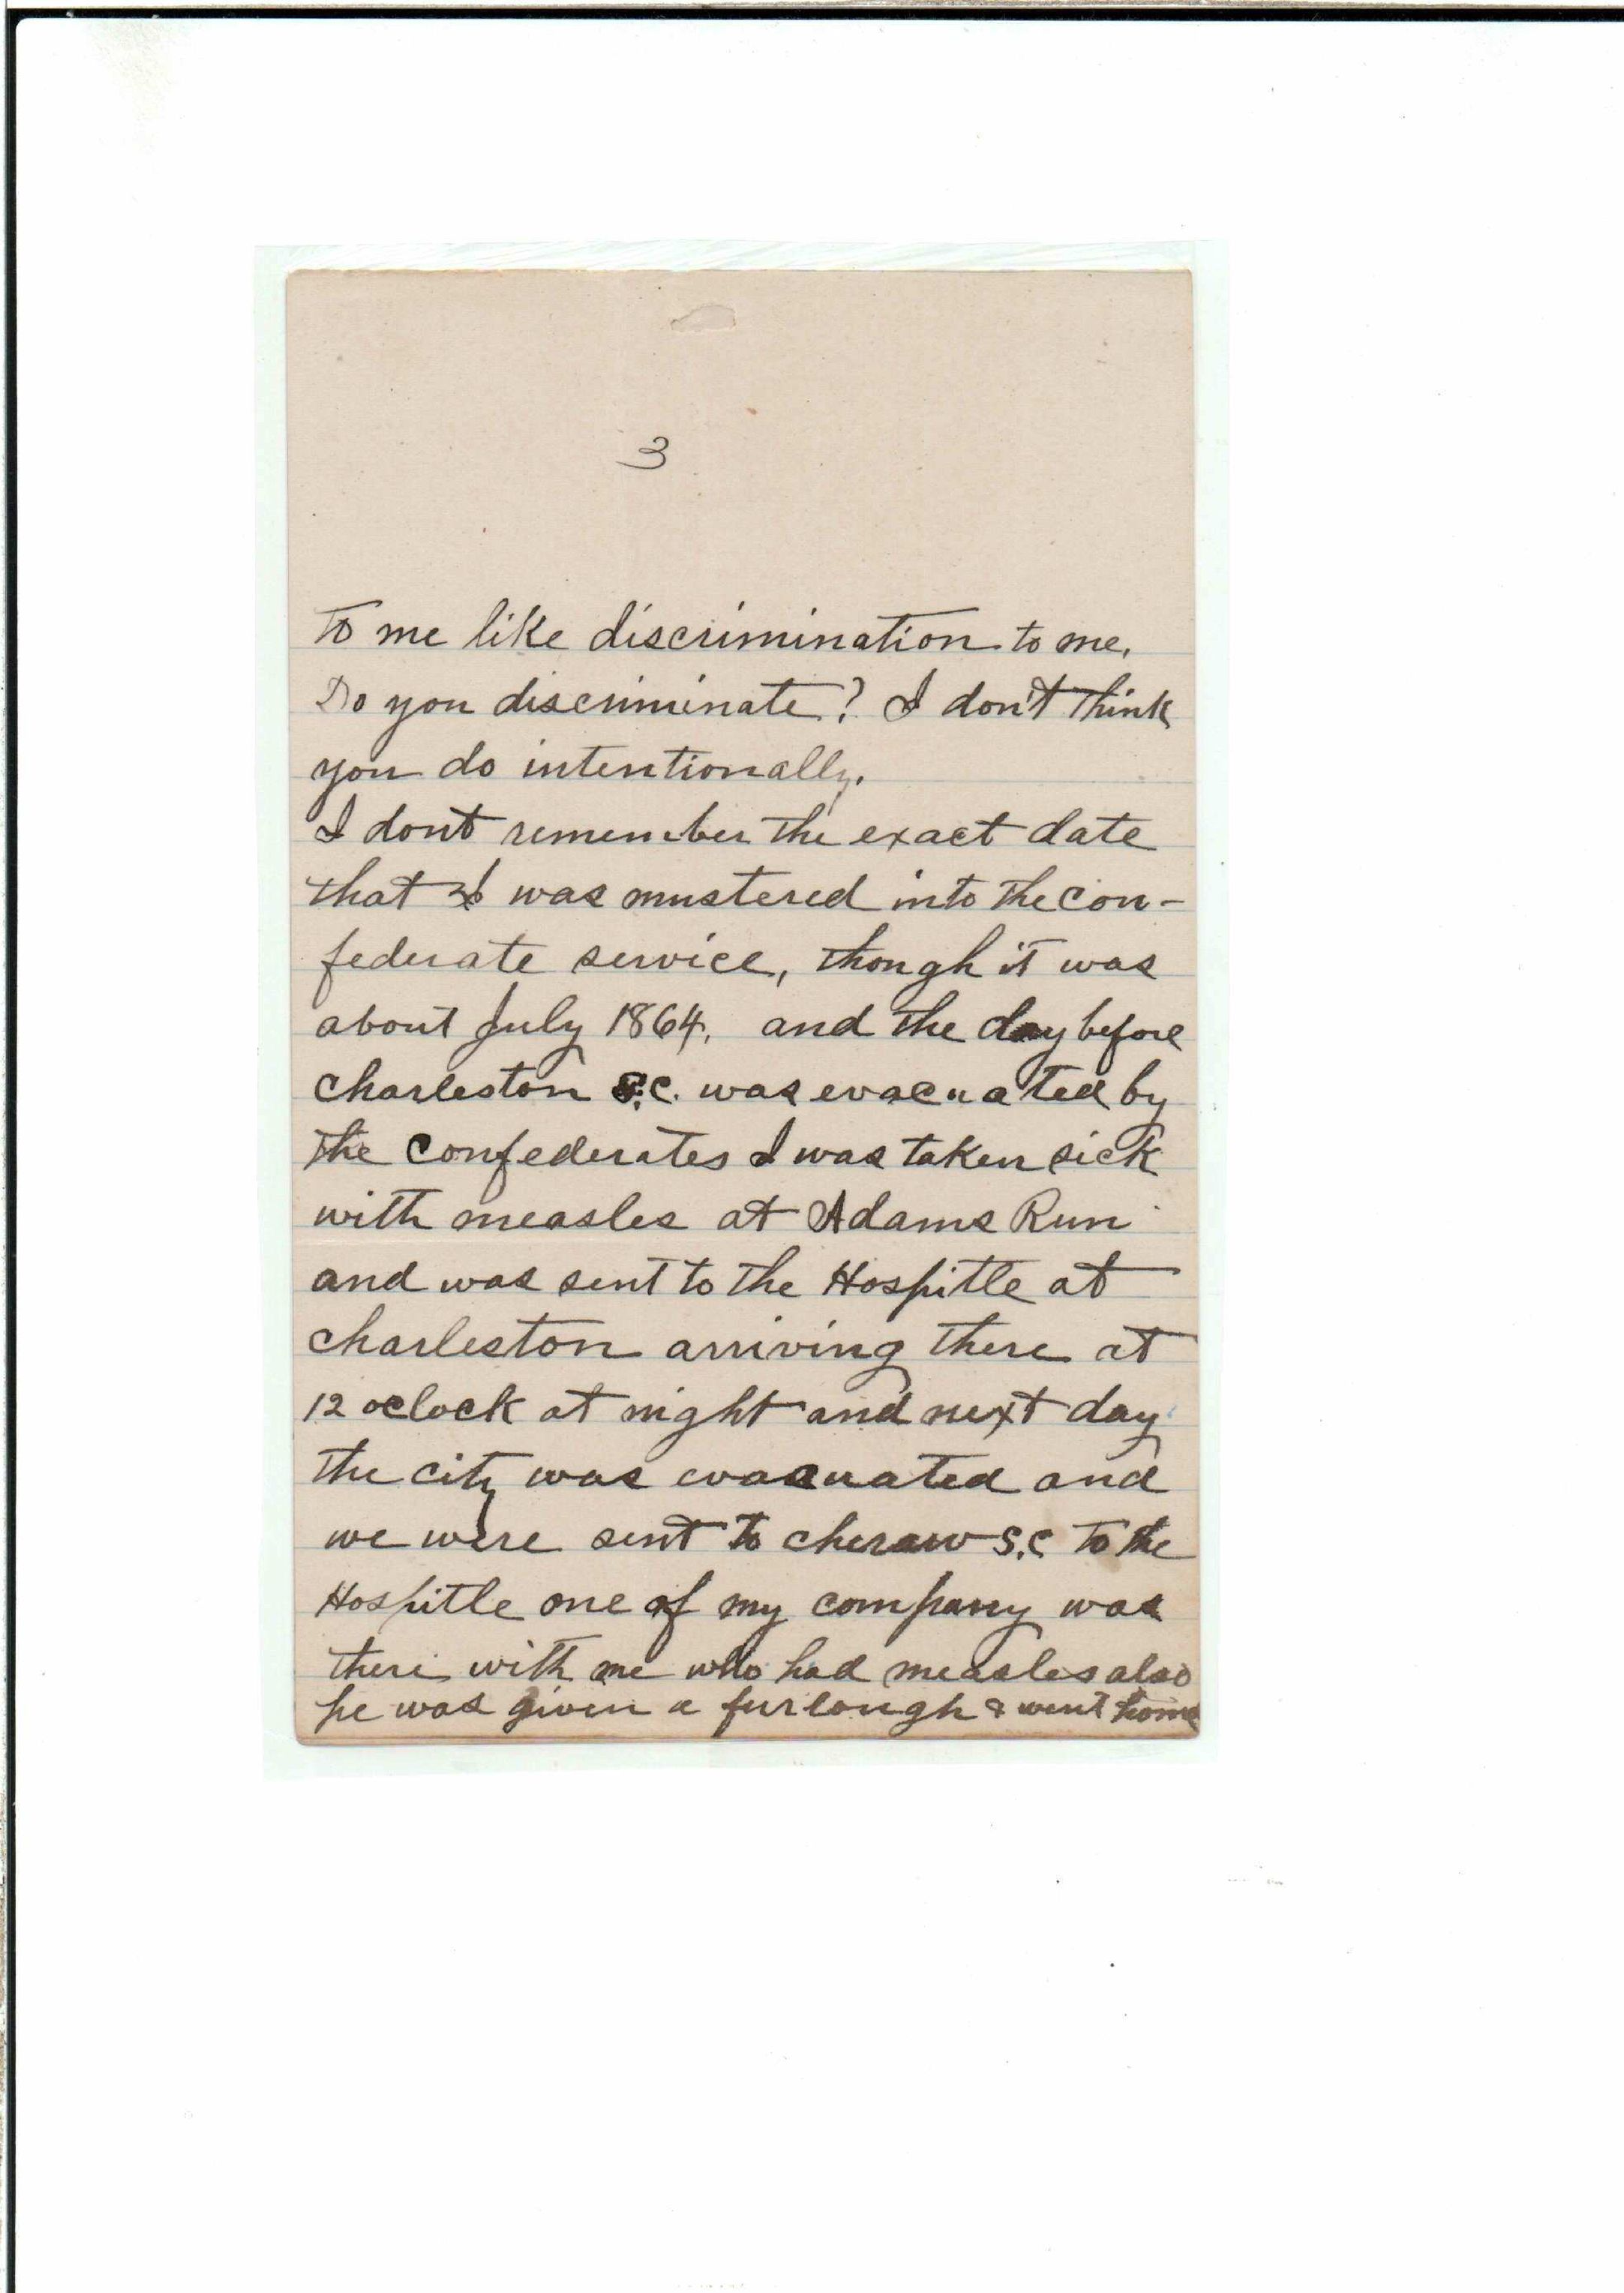 3
To me like discrimination to me.
Do you discriminate? I don't think
you do intentionally.
I dont remember the exact date
that I was mustered into the Con-
federate service, though it was
about July 1864. and the day before
Charleston S.C. was evacuated by
the Confederates I was taken sick
with measles at Adams Run
and was sent to the Hospitle at
Charleston arriving there at
12 oclock at night and next day
the city was evacuated and
we were sent to Cheraw S.C to the
Hospitle one of my company was
there with me who had measles also
he was given a furlough & went home